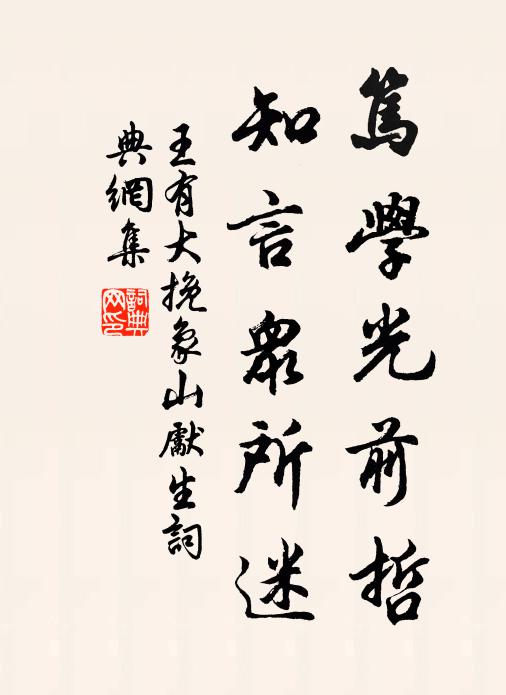 篤學光前哲
知言眾所迷
王有大挽象山獻生詞
典網集
詞典網印